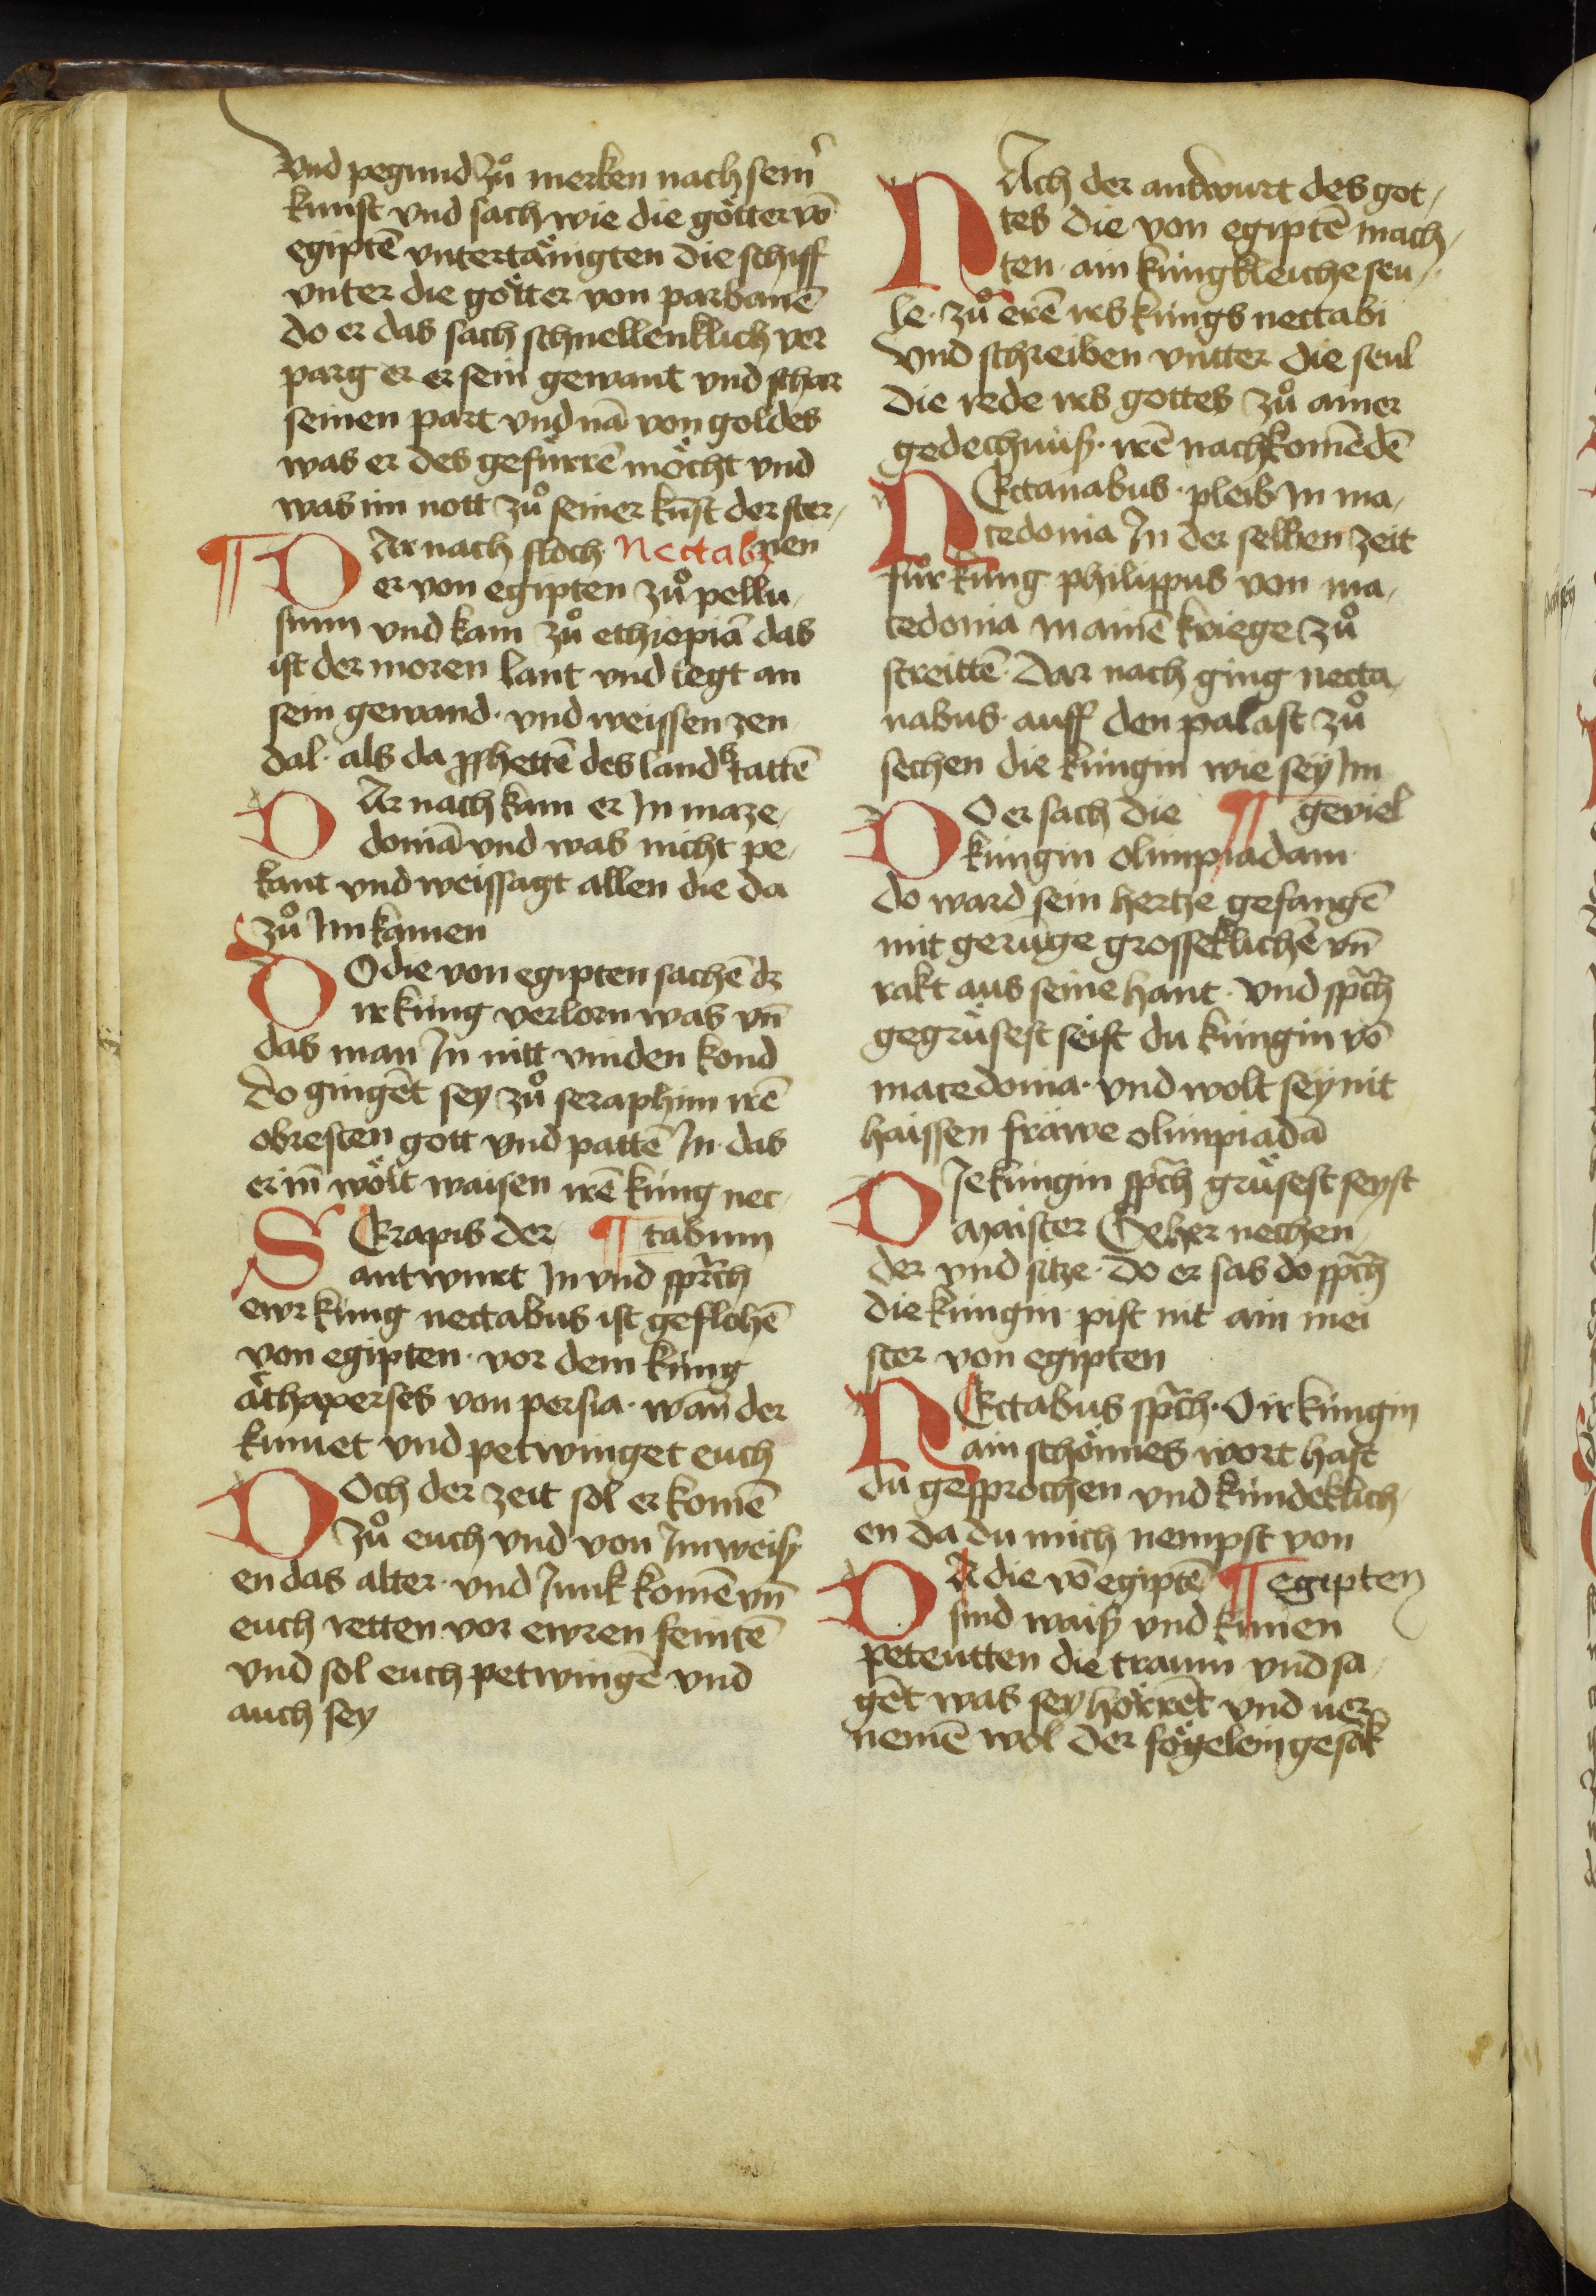 vnd pegund zů merken nach seinˀ
kunst vnd sach wie die götter vō
egiptē vntertänigten die schiff
vnter die götter von parbanē
do er das sach schnellenklich ver
parg er er sein gewant vnd schar
seinen part vnd nā von goldes
was er des gefürrē möcht vnd
was im nott zů seiner kūst der ster¬
¶ DAr nach floch Nectabꝫ nen
er von egipten zů pellu¬
sium vnd kam zů ethiopiā das
ist der moren lant vnd legt an
sein gewand · vnd weissen zen
dal · als da ꝓphettē des lands tattē
DAr nach kam er In maze¬
doniā vnd was nicht pe¬
kant vnd weissagt allen die da
zů Im kamen
DO die von egipten sachē dz
ir kung verlorn was vn̄
das man In nitt vinden kond
do gingēt sey zů seraphim irē
obresten gott vnd pattē In · das
er in̄ wölt waisen irē kung nec¬
SErapis der ¶ tabum
antwurt In vnd spr̄ch
ewr kung nectabus ist geflohē
von egipten · vor dem kung
äthaxerses von persia · wan̄ der
kumet vnd petwinget euch
DOch der zeit sol er komē
zů euch vnd von Im weis¬
en das alter · vnd Junk komē vn̄
euch retten vor ewren feintē
vnd sol euch petwingē vnd
auch sey
NAch der antwurt des got¬
tes die von egiptē mach¬
ten · ain kungkleiche seu¬
le · zů erē irs kungs nectabi
vnd schreiben vntter die seul
die rede irs gottes zů ainer
gedechnuß · irē nachkomēdē
NEctanabus · pleib In ma¬
cedonia In der selben zeit
fůr kung philippus von ma¬
cedonia In ainē kriege zů
streittē · Dar nach ging necta¬
nabus · auff den palast zů
sechen die kungin wie sey Im
DO er sach die ¶ geviel
kungin olimpiadam
do ward sein hertze gefangē
mit geruge grosseklichē vn̄
rakt aus seine hant · vnd spr̄ch
gegrüsest seist du kungin vō
macedonia · vnd wolt sey nit
haissen fräwe olimpiadā
DIe kungin spr̄ch grüsest seyst
maister Geher nechen
der vnd sitze · do er sas do spr̄ch
die kungin pist nit ain mei
ster von egipten
NEctabus spr̄ch · O ir kungin
ain schönnes wort hast
du gesprochen vnd kundeklich¬
en da du mich nempst von
DA die vō egiptē ¶ egipten
sind waiß vnd kunnen
peteutten die traum vnd sa¬
gēt was sey hörrēt vnd ver
nemē wol der fögelein gesāk